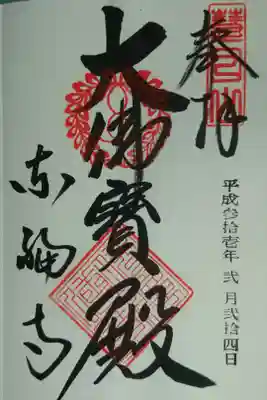 奉拝
慧日山
平成参拾壱年 弐月弐拾四日
大佛寶殿
東福寺